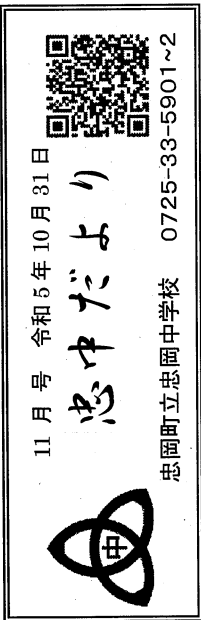 11月号 令和5年10月31日
忠中だより
忠岡町立忠岡中学校 0725-33-5901~2
中